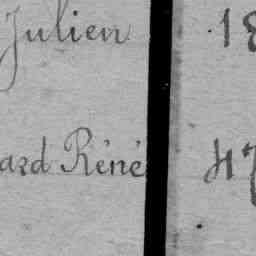 Julien 18
ard Réné 47